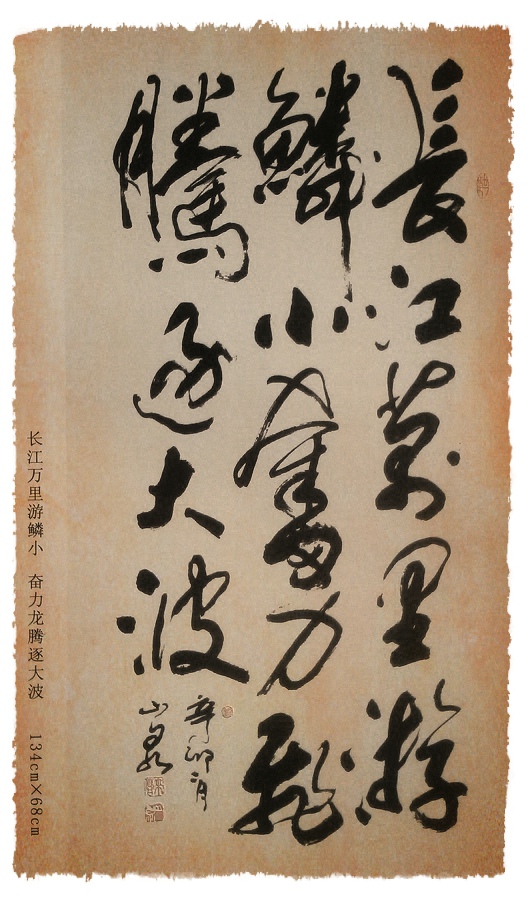 長江萬里游
鱗小奮力龍
騰逐大波
辛卯二月
山泉
长江万里游鳞小 奋力龙腾逐大波 134cm×68cm